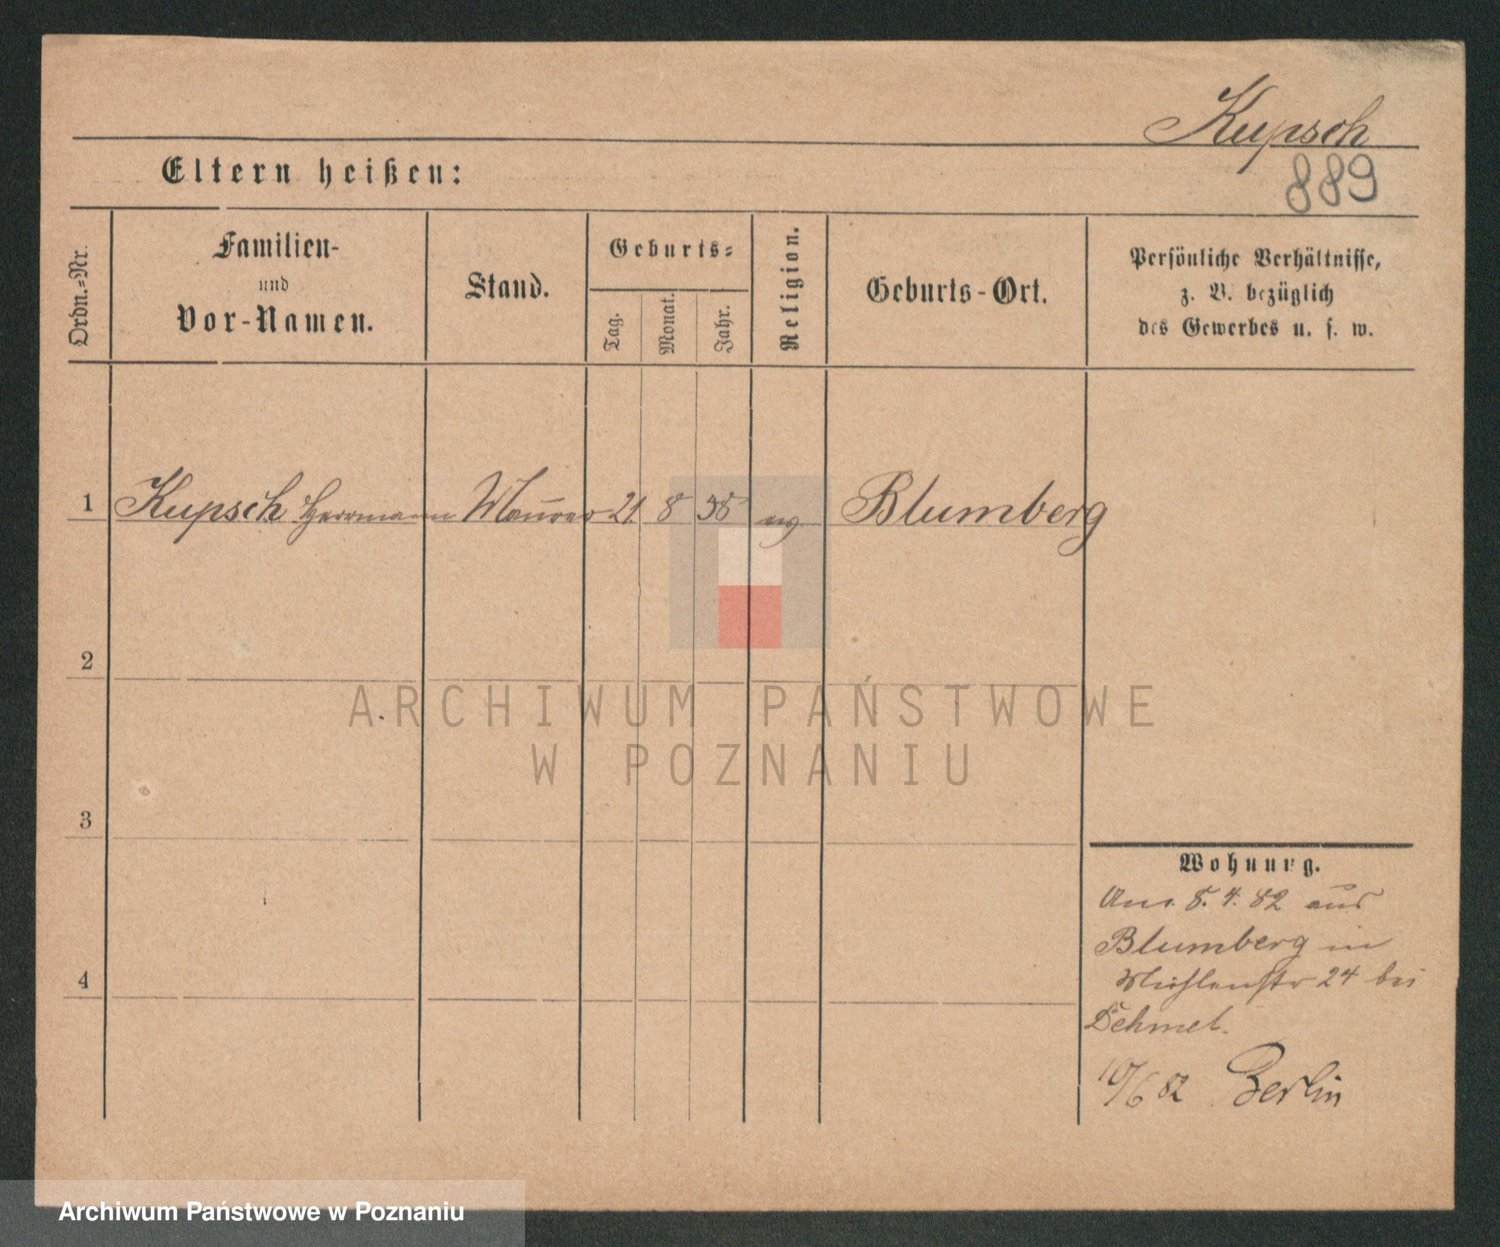 Kupsch
889
Eltern heißen:
Ordn.-Nr.
Familien-
und
Vor-Namen.
Stand.
Geburts-
Tag.
Monat.
Jahr.
Religion.
Geburts-Ort.
Persönliche Verhältnisse,
z. B. bezüglich
des Gewerbes u. s. w.
1 Kupsch Herrmann Maurer 21 8 38 ev. Blumberg
2
3
4
Wohnung.
8. 4. 82 aus
Blumberg in
Mühlenstr 24 bei
Dehmel.
10/6 82 Berlin
ARCHIWUM PAŃSTWOWE
W POZNANIU
Archiwum Państwowe w Poznaniu